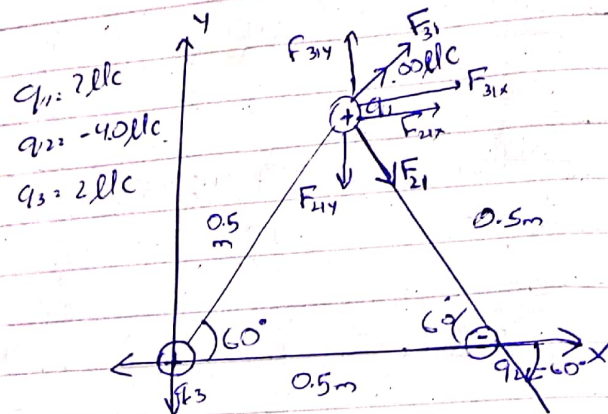 Y
q₁ = 7 μc
q₂ = -4.0 μc
q₃ = 2 μc
F31Y
F31
7.00 μc
F31x
q₁
+
F21x
F21
F21Y
0.5
m
0.5m
60°
60°
+
-
X
q₃
0.5m
q₂
-60°